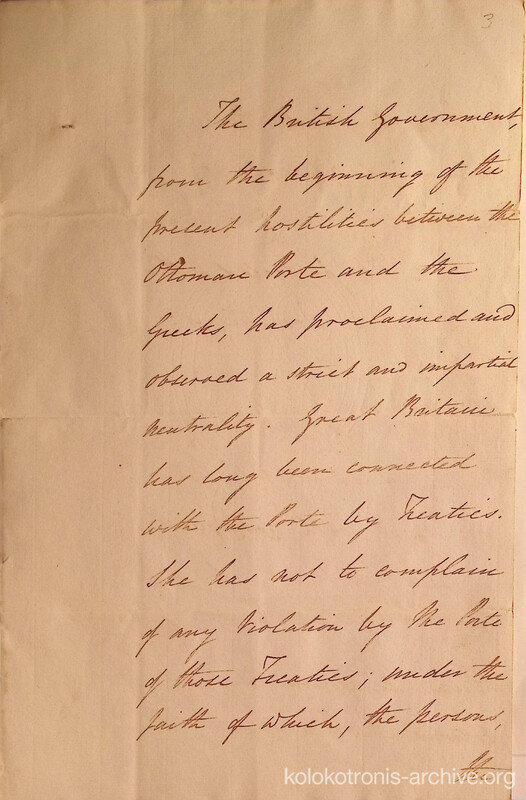 3
The British Government,
from the beginning of the
present hostilities between the
Ottoman Porte and the
Greeks, has proclaimed and
observed a strict and impartial
neutrality. Great Britain
has long been connected
with the Porte by Treaties.
She has not to complain
of any Violation by the Porte
of those Treaties; under the
faith of which, the persons,
the
kolokotronis-archive.org